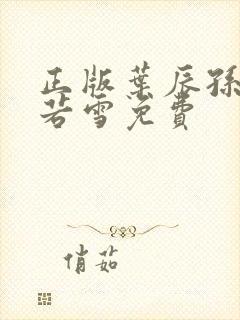 正版叶辰孙
若雪免费
俏茹